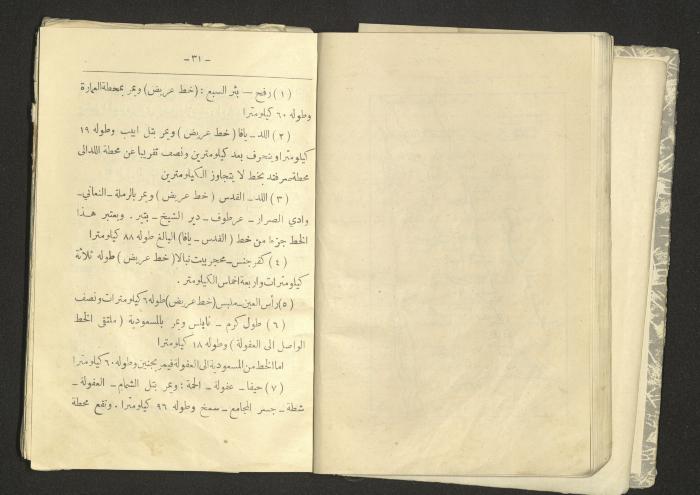 - ٣١ -
(١) رفح – بئر السبع : (خط عريض) ويمر بمحطة العمارة
وطوله ٦٠ كيلومترا
(٢) اللد – يافا (خط عريض) ويمر بتل ابيب وطوله ١٩
كيلومترا وينحرف بعد كيلومترين ونصف تقريبا عن محطة اللد الى
محطة صرفند بخط لا يتجاوز الكيلومترين
(٣) اللد – القدس (خط عريض) ويمر بالرملة – النعاني –
وادي الصرار – عرطوف – دير الشيخ – بتير . ويعتبر هذا
الخط جزءا من خط (القدس – يافا) البالغ طوله ٨٨ كيلومترا
(٤) كفر جنس – محجر بيت نبالا (خط عريض) طوله ثلاثة
كيلومترات واربعة اخماس الكيلومتر .
(٥) رأس العين – ملبس (خط عريض) طوله ٦ كيلومترات ونصف
(٦) طول كرم – نابلس ويمر بالمسعودية (ملتقى الخط
الواصل الى العفولة) وطوله ١٨ كيلومترا
اما الخط من المسعودية الى العفولة فيمر بجنين وطوله ٦٠ كيلومترا
(٧) حيفا – عفولة – الحمة : ويمر بتل الشمام – العفولة –
شطة – جسر المجامع – سمخ وطوله ٩٦ كيلومترا . وتقع محطة